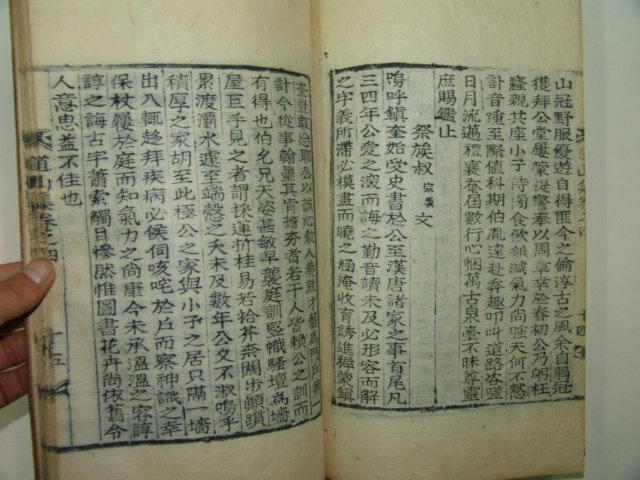 山冠野服優遊自得匪今之倫淳古之風余自弱冠
獲拜公堂屢蒙提警奉以周章孥於春初公乃躬枉
癃親共座小子侍側食飮雖減氣力尚強天何不憖
訃音遽至際値科期伯胤遠赴奔趨叩叫道路咨嗟
日月流邁禮襄奄屆數行心悃萬古泉臺不昧尊靈
庶賜鑑止
祭族叔 文
嗚呼鎭奎始受史書於公至漢唐諸家之事首尾凡
三四年公愛之深而誨之勤音讀未及必形容而解
之字義所滯必模畫而曉之涵淹收育誘進穉蒙鎭
奎豈敢忘耶公以誠心敎人
計今從事翰墨其肯擔夯者若干人皆賴公之訓而
有得也伯允兄天姿甚敏早襲庭訓堅幟騷壇爲塲
屋巨手見之者謂採蓮折桂易若拾芥奈闊步顚躓
累渡灞水遽至端慤之夭未及數年公又不淑嗚乎
積厚之家胡至此極公之家與小子之居只隔一墻
出入輒趍拜疾病必候伺咳咜於戶而察神識之幸
保杖屨於庭而知氣力之尙康今未承溫溫之容諄
諄之誨古宇蕭索觸目慘然惟圖書花卉尙依舊令
人意思益不佳也
道山集卷之四 十五